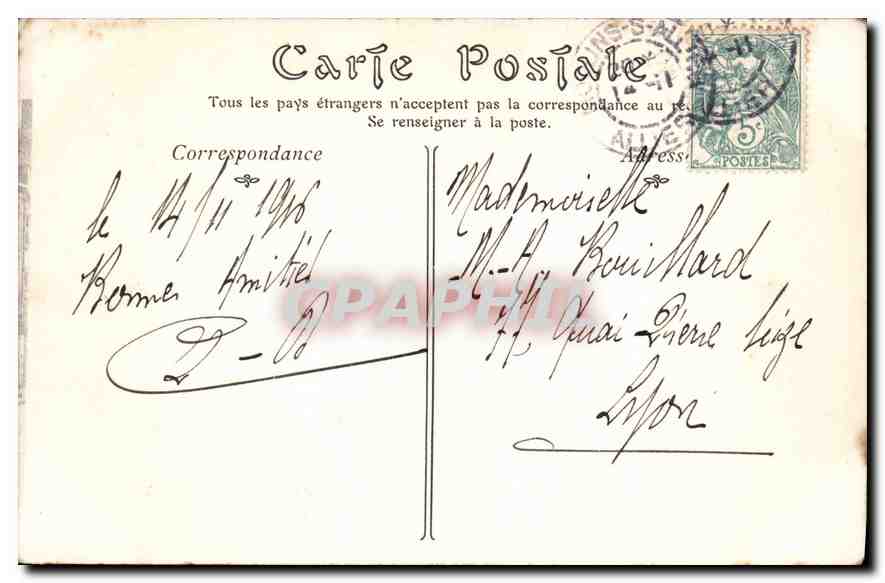 Carte Postale
Tous les pays étrangers n'acceptent pas la correspondance au
Se renseigner à la poste.
Correspondance
le 14/11 1906
Bonnes Amitiés
D-B
Adresse
Mademoiselle
M.-A. Bouillard
77, Quai Pierre Scize
Lyon
5c
POSTES
ALLIER
CPAPHIL